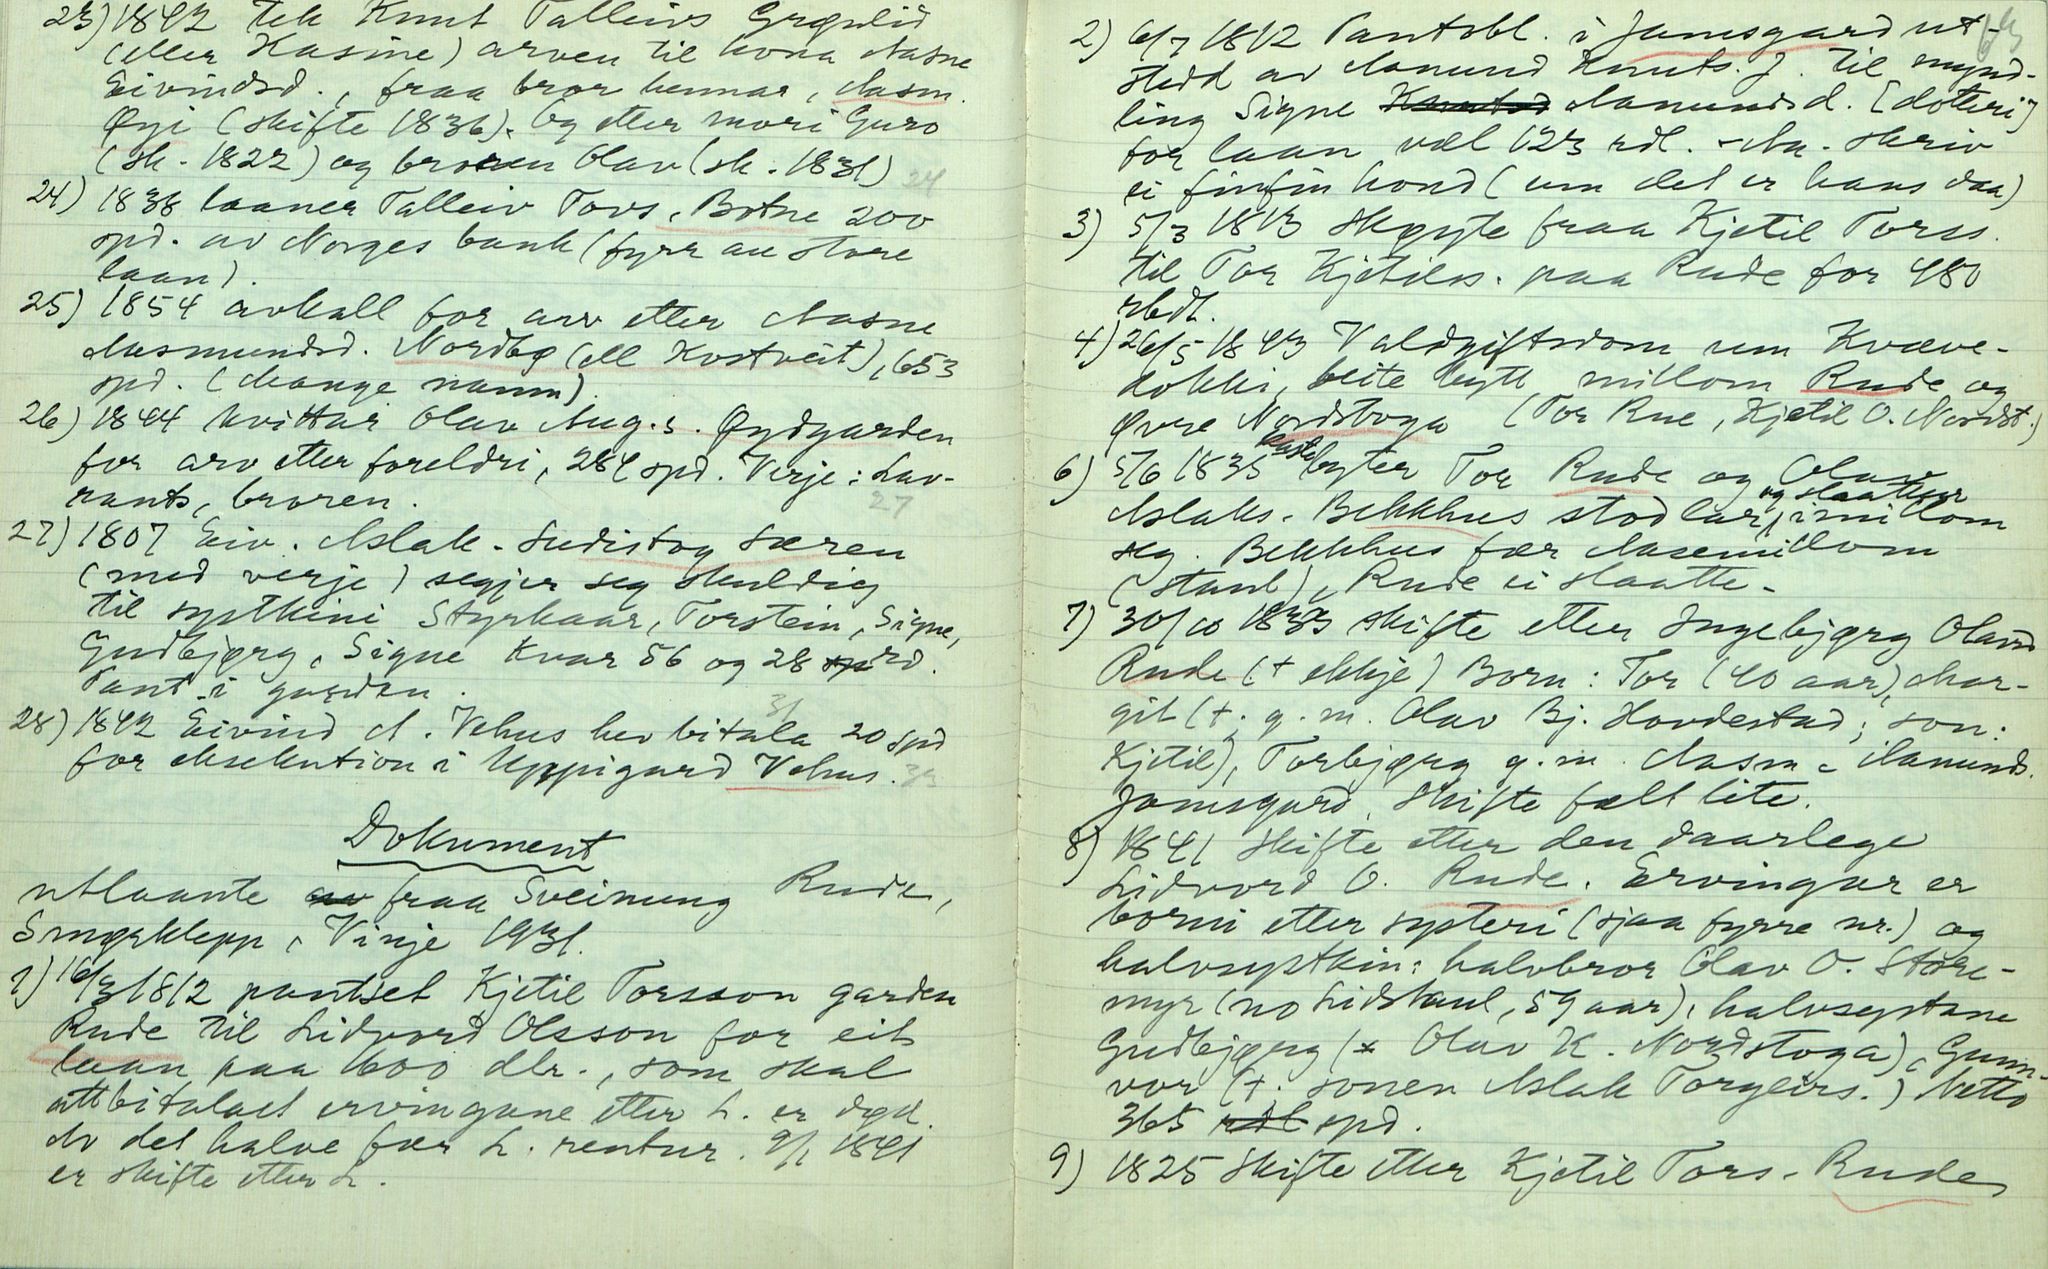 23) 1842 tek Knut Talleivs Grøvlid
(eller Kasine) arven til kona Aasne
Eivindsd., fraa bror hennar, Aasm.
Øyi (skifte 1836). Og etter mori Guro
(sk. 1822) og broren Olav (sk. 1831) 24
24) 1838 laaner Talleiv Tovs. Botne 200
spd. av Norges bank (fyrr au store
laan).
25) 1854 avkall for arv etter Aasne
Aasmundsd. Nordbø (ell Kostveit), 653
spd. (Mange namn)
26) 1844 kvittar Olav Aug.s. Øydgarden
for arv etter foreldri, 284 spd. Verje: Lav-
rants, broren.
27
27) 1807 Eiv. Aslak. Sudistog Særen
(med verje) segjer seg skuldig
til systkini Styrkaar, Torstein, Signe,
Gudbjørg, Signe kvar 56 og 28 rd.
Pant i garden.
31
28) 1842 Eivind A. Vehus hev bitala 20 spd
for eksekution i Uppigard Vehus. 33
Dokument
utlaante av fraa Sveinung Rude,
Smørklepp, Vinje 1931.
1) 16/3 1812 pantset Kjetil Torsson garden
Rude til Lidvord Olsson for eit
laan paa 1600 dlr., som skal
attbitalast ervingane etter L. er død.
Av det halve fær L. rentur. 9/1 1841
er skifte etter L.
64
2) 6/7 1812 Pantobl. i Jamsgard ut-
stedd av Aamund Knuts. J. til mynd-
ling Signe Knutsd Aamundsd. [dotteri]
for laan væl 123 rdl. - Aa. skriv
ei finfin hond (um det er hans daa)
3) 5/3 1813 Skøyte fraa Kjetil Torss.
til Tor Kjetilss. paa Rude for 480
rbdl.
4) 26/5 1843 Valdgiftsdom um Kvæve-
dokki, beite bytt millom Rude og
Øvre Nordstoga (Tor Rue, Kjetil O. Nordst.)
6) 5/6 1835 byter Tor Rude og Olav
Aslaks. Bekkhus stodlar og slaattur imillom
seg. Bekkhus fær Aasemillom
(staul), Rude ei slaatte.
7) 30/10 1833 skifte etter Ingebjørg Olavsd
Rude († ekkje) Born: Tor (40 aar), Mar-
git (†. g.m. Olav Bj. Hovdestad; son:
Kjetil), Torbjørg g.m. Aasm. Aamunds.
Jamsgard. Skifte fælt lite.
8) 1841 Skifte etter den daarlege
Lidvord O. Rude. Ervingar er
borni etter systeri (sjaa fyrre nr.) og
halvsystkin: halvbror Olav O. Støre-
myr (no Lidstaul, 59 aar), halvsystane
Gudbjørg (x Olav K. Nordstoga), Gunn-
vor (†. sonen Aslak Torgeirs.) Netto
365 rdl spd.
9) 1825 Skifte etter Kjetil Tors. Rude